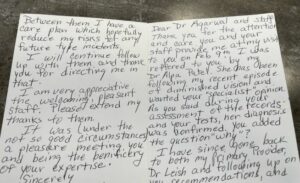 Dear Dr Agarwal and staff
Thank you for the attention
and care you and your
staff provide me at my visit
to you on Feb 9th. I was
referred to you by my
Dr Alpa Patel. She has been
following my recent episode
of diminished vision and
wanted your specialist opinion.
As you said during your
assessment of the records,
and your tests, her diagnosis
was confirmed. You added
the question "why"?
I have since gone back
to both my Primary Provider,
Dr Leish and following up on
your recommendations, and
Between them I have a
care plan which hopefully
reduce my risks for any
future type incidents.
I will continue follow
up with them and thank
you for directing me in
that.
I am very appreciative
the welcoming & smart
staff. Please extend my
thanks to them.
It was (under the
not so good circumstances)
a pleasure meeting you
and being the benificiery
of your expertise.
Sincerely